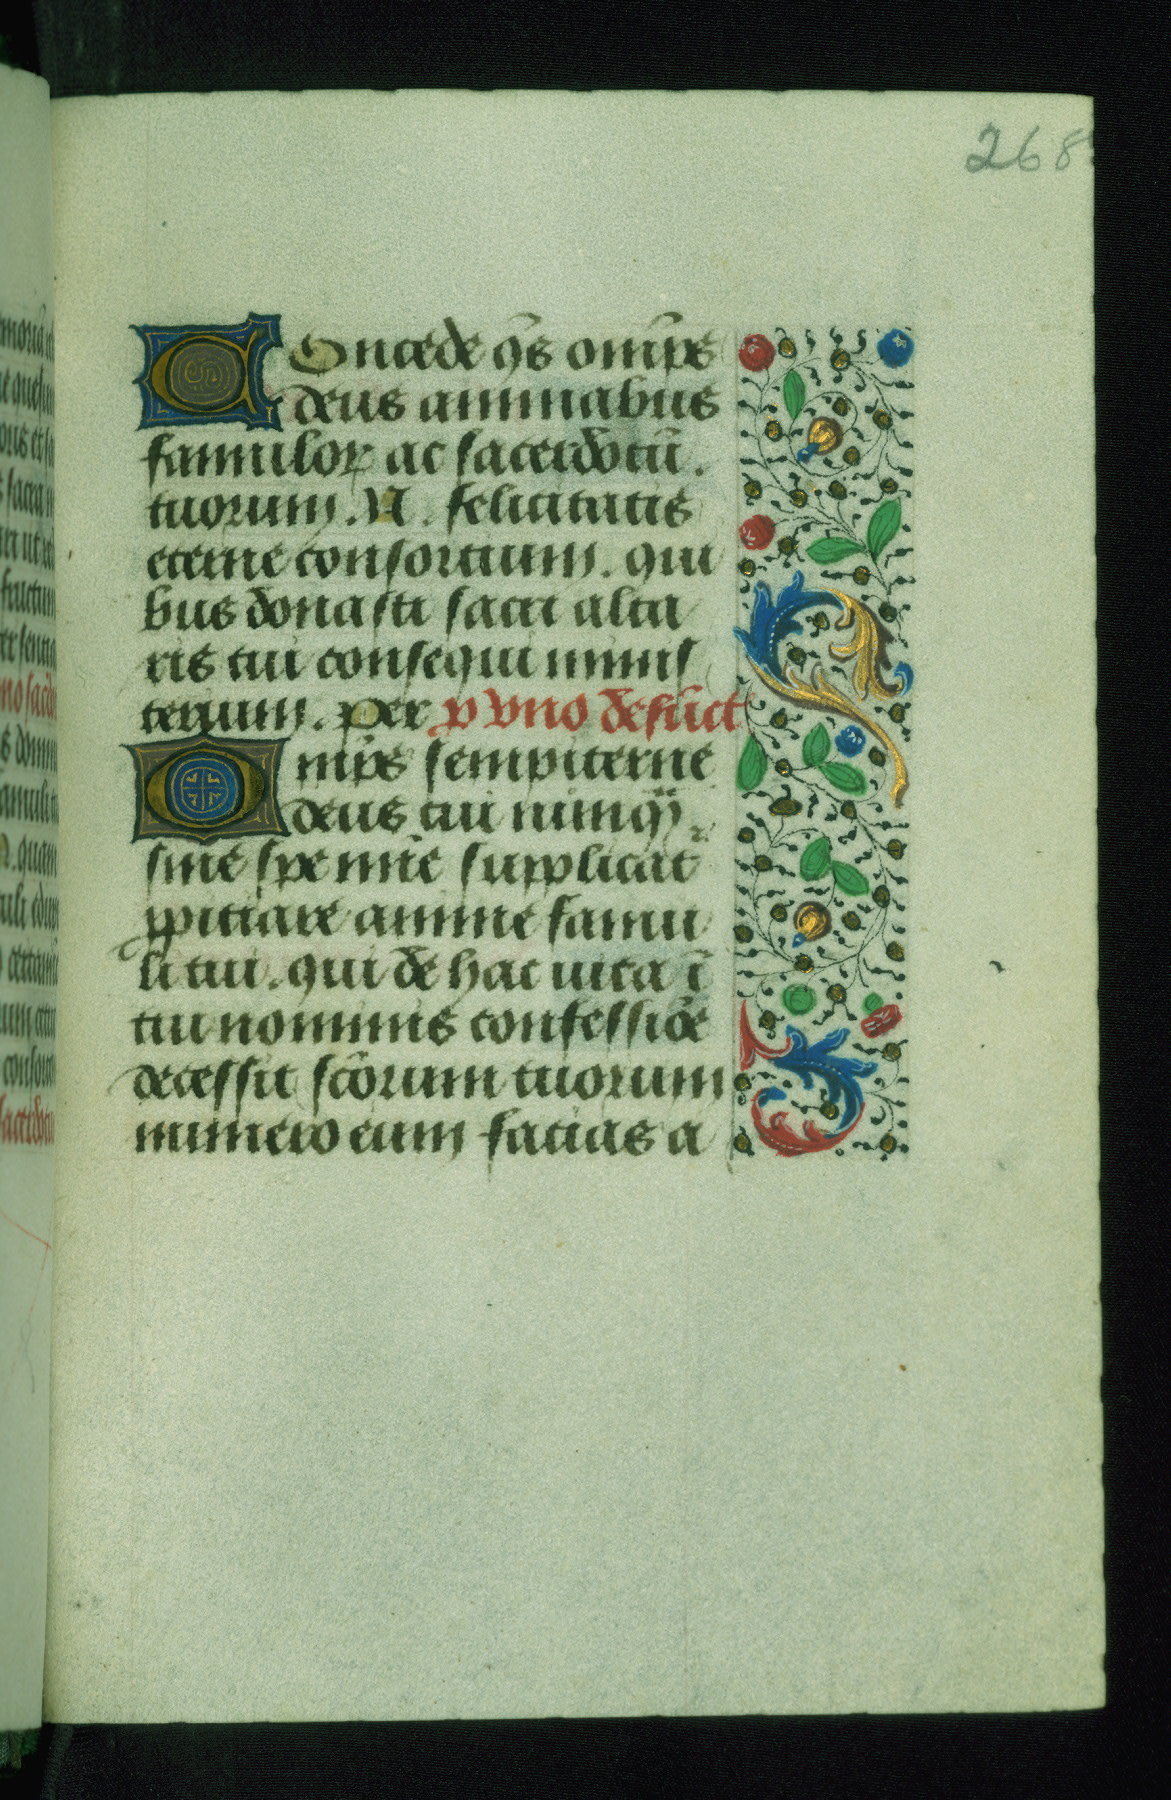 268
Concede q̄s om̄ps
deus animabus
famuloꝝ ac sacerdotū.
tuorum. N. felicitatis
eterne consortium. qui
bus donasti sacri alta
ris tui consequi minis
terium. per p vno defūct
Omps sempiterne
deus cui nunq̄
sine spe mīe supplicat᷑
ꝓpitiare anime famu
li tui. qui de hac uita ī
tui nominis confessiōe
decessit scōrum tuorum
numero eum facias a